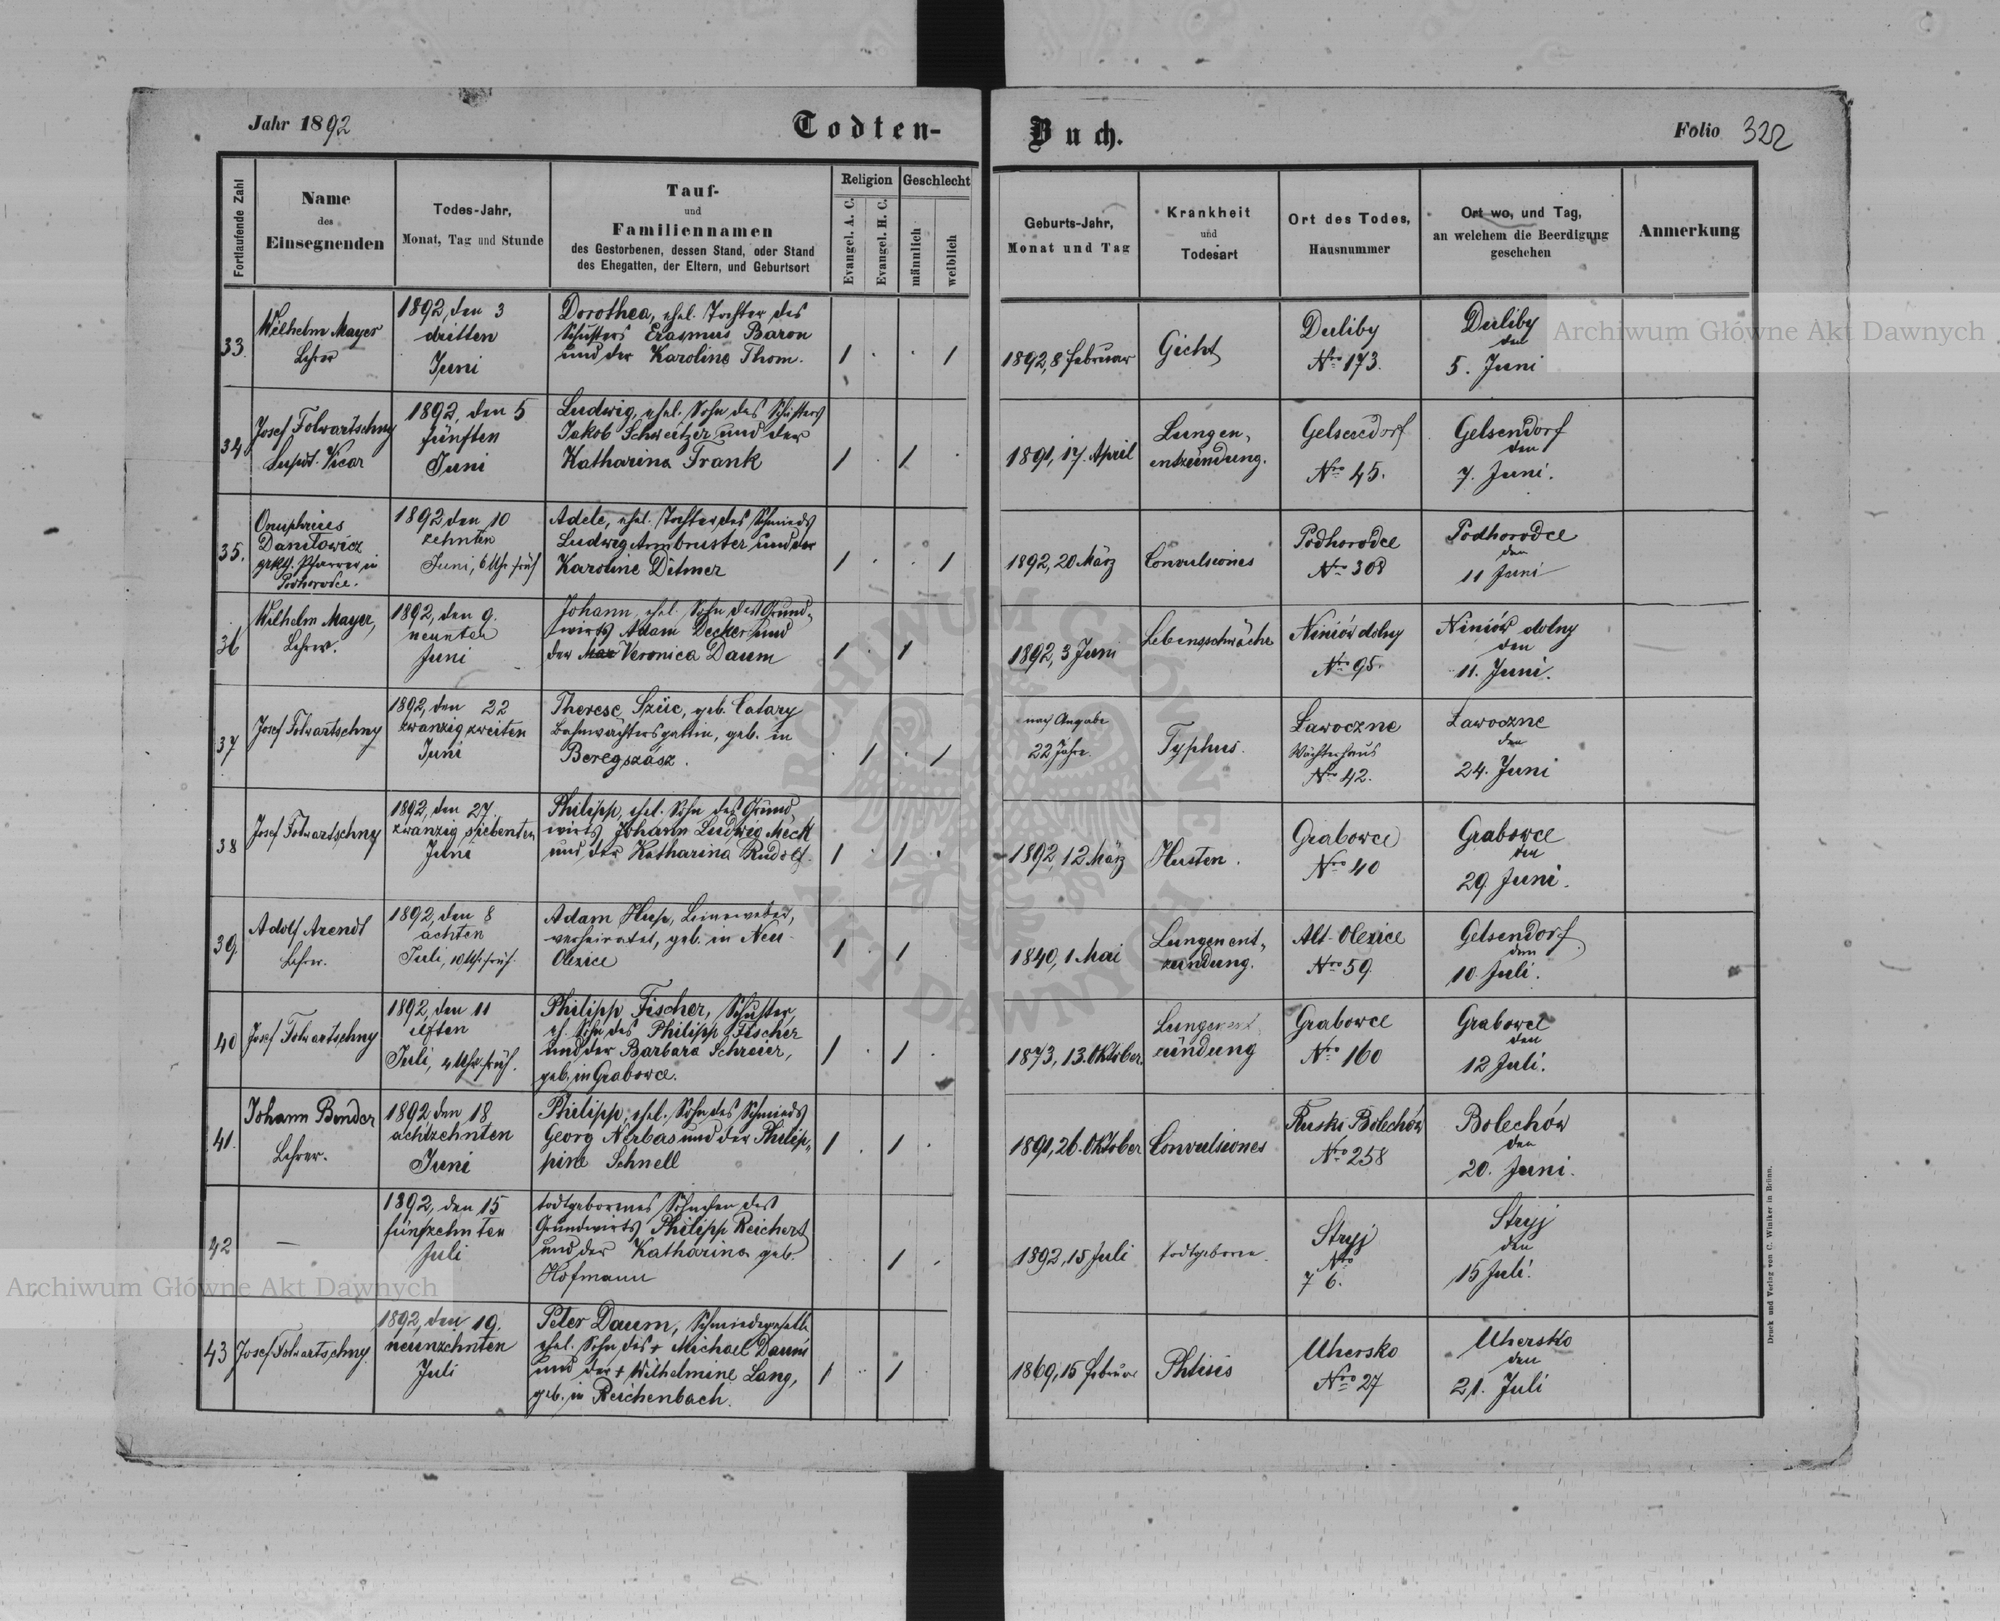 Jahr 1892
Todten-
Buch.
Folio 322
Fortlaufende Zahl
Name
des
Einsegnenden
Todes-Jahr,
Monat, Tag und Stunde
Tauf-
und
Familiennamen
des Gestorbenen, dessen Stand, oder Stand
des Ehegatten, der Eltern, und Geburtsort
Religion
Evangel. A. C.
Evangel. H. C.
Geschlecht
männlich
weiblich
Geburts-Jahr,
Monat und Tag
Krankheit
und
Todesart
Ort des Todes,
Hausnummer
Ort wo, und Tag,
an welchem die Beerdigung
geschehen
Anmerkung
33.
Wilhelm Mayer
Lehrer
1892, den 3
dritten
Juni
Dorothea, ehel. Tochter des
Schusters Erasmus Baron
und der Karoline Thom.
1892, 8 Februar
Gicht
Duliby
Nro 173.
Duliby
den
5. Juni
34
Josef Folwartschny
Vicar
1892, den 5
fünften
Juni
Ludwig, ehel. Sohn des Schusters
Jakob Schweitzer und der
Katharina Frank
1891, 17. April
Lungen-
entzündung.
Gelsendorf
Nro 45.
Gelsendorf
den
7. Juni.
35.
Onuphrius
Daniłowicz
grkth. Pfarrer in
Podhorodce.
1892 den 10
zehnten
Juni, 6 Uhr früh
Adele, ehel. Tochter des Schmieds
Ludwig Armbruster und der
Karoline Ditmer
1892, 20 März
Convulsiones
Podhorodce
Nro 308
Podhorodce
den
11 Juni
36
Wilhelm Mayer,
Lehrer.
1892, den 9.
neunten
Juni
Johann, ehel. Sohn des Grund-
wirts Adam Decker und
der Mar Veronica Daum
1892, 3 Juni
Lebensschwäche
Niniów dolny
Nro 95.
Niniów dolny
den
11. Juni.
37
Josef Folwartschny
1892, den 22
zwanzig zweiten
Juni
Therese Szüc, geb. Catary
Bahnwächtersgattin, geb. in
Beregszász.
nach Angabe
22 Jahre.
Typhus.
Ławoczne
Wächterhaus
Nro 42.
Ławoczne
den
24. Juni
38
Josef Folwartschny
1892, den 27.
zwanzig siebenten
Juni
Philipp, ehel. Sohn des Grund-
wirts Johann Ludwig Meck
und der Katharina Rudolf.
1892, 12 März
Husten.
Grabowce
Nro 40
Grabowce
den
29. Juni.
39.
Adolf Arendt
Lehrer.
1892, den 8
achten
Juli, 10 Uhr früh.
Adam Hup, Leineweber,
verheiratet, geb. in Neu-
Olexice
1840, 1 Mai
Lungenent-
zündung.
Alt-Olexice
Nro 59
Gelsendorf
den
10. Juli.
40
Josef Folwartschny
1892, den 11
elften
Juli, 4 Uhr früh.
Philipp Fischer, Schuster,
eh. Sohn des Philipp Fischer
und der Barbara Schreier,
geb. in Grabowce.
1873, 13. Oktober.
Lungenent
zündung
Grabowce
Nro 160
Grabowce
den
12 Juli.
41.
Johann Bender
Lehrer.
1892 den 18
achtzehnten
Juni
Philipp, ehel. Sohn des Schmieds
Georg Nerbas und der Philip-
pine Schnell
1891, 26. Oktober
Convulsiones
Ruski Bolechów
Nro 258
Bolechów
den
20. Juni.
42
—
1892, den 15
fünfzehnten
Juli
todtgebornes Söhnchen des
Grundwirts Philipp Reichert
und der Katharina geb.
Hofmann
1892, 15 Juli
todtgeboren
Stryj
Nro
76.
Stryj
den
15 Juli.
43
Josef Folwartschny.
1892, den 19.
neunzehnten
Juli
Peter Daum, Schmiedgeselle
ehel. Sohn des + Michael Daum
und der + Wilhelmine Lang,
geb. in Reichenbach.
1869, 15 Februar
Phtisis
Uhersko
Nro 27
Uhersko
den
21. Juli
Druck und Verlag von C. Winiker in Brünn.
Archiwum Główne Akt Dawnych
Archiwum Główne Akt Dawnych
ARCHIWUM GŁÓWNE
AKT DAWNYCH